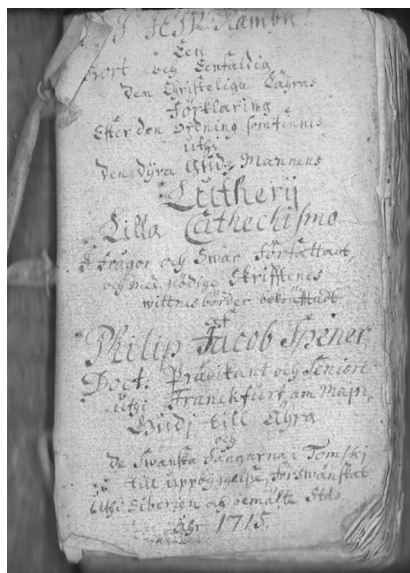 I JESU Namn!
Een
Kort och Eenfaldig
den Christeliga Lährās
Förklaring
Efter den Ordning som finnes
uthi
den dyra Gudz Mannens
Lutherij
Lilla Cathechismo
I frågor och Swar författadt,
och med nödige Skrifftenes
wittnesbörder bekräftadt
af
Philip Jacob Spener,
Doct. Prädikant och Seniore
uthi Franckfurt am Majn,
Gudj till Ähra
och
de Swänska fångarna i Tomskj
till uppbyggelse, förswänskat
Uthi Siberien och bemälte Stad
Åhr 1715.